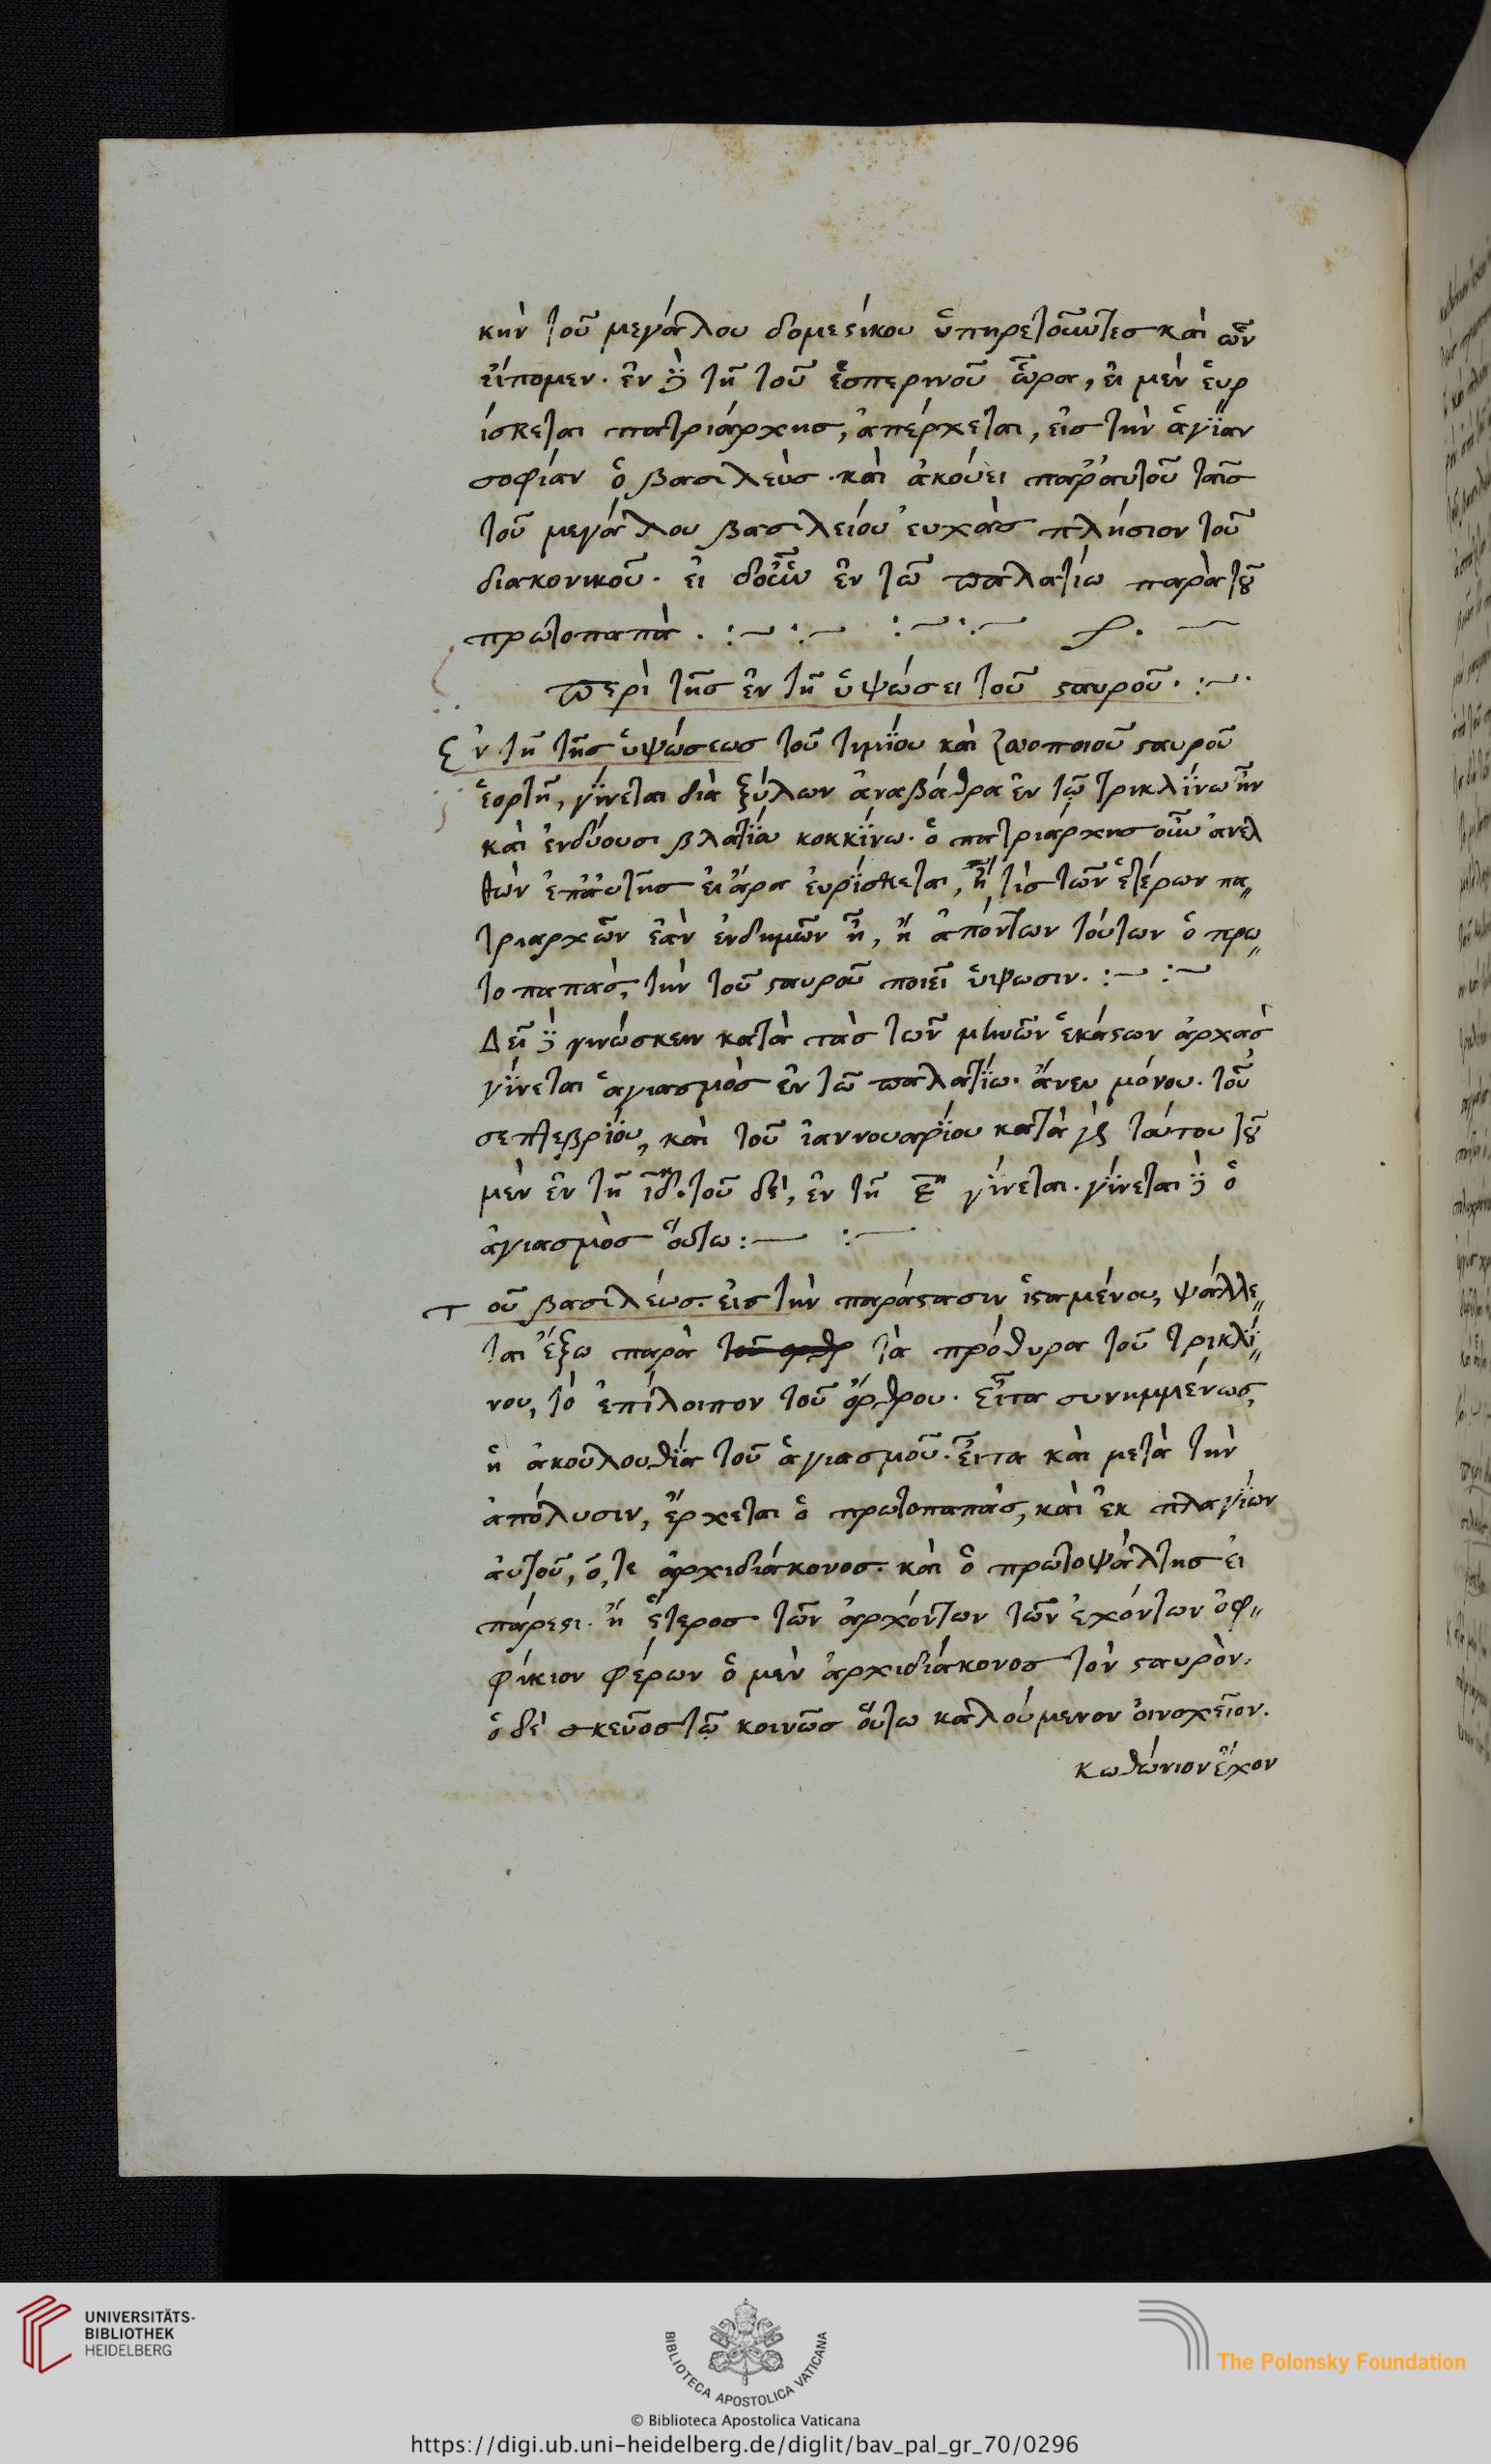 κὴν τοῦ μεγάλου δομεστίκου ὑπηρετοῦντες καὶ ὧν
εἴπομεν. ἐν δὲ τῆ τοῦ ἑσπερινοῦ ὥρα, εἰ μὲν εὑρ
ίσκεται πατριάρχης, ἀπέρχεται, εἰς τὴν ἁγίαν
σοφίαν ὁ βασιλεὺς. καὶ ἀκούει παρ' αὐτοῦ ταῖς
τοῦ μεγάλου βασιλείου εὐχὰς πλήσιον τοῦ
διακονικοῦ. εἰ δοῦν ἐν τῶ παλατίω παρὰ τοῦ
πρωτοπαπὰ. :~ :~ :~ :~
Περὶ τῆς ἐν τῆ ὑψώσει τοῦ σταυροῦ. :~
Ἐν τῆ τῆς ὑψώσεως τοῦ τιμίου καὶ ζωοποιοῦ σταυροῦ
ἑορτῆ, γίνεται διὰ ξύλων ἀναβάθρα ἐν τῶ τρικλίνω ἣν
καὶ ἐνδύουσι βλατία κοκκίνω. ὁ πατριάρχης οὖν ἀνελ
θὼν ἐπ' αὐτῆς εἰ ἄρα εὑρίσκεται, ἢ τὶς τῶν ἑτέρων πα„
τριαρχῶν ἐὰν ἐνδημῶν ἦ, ἢ ἀπόντων τούτων ὁ πρω„
τοπαπὰς, τὴν τοῦ σταυροῦ ποιεῖ ὕψωσιν. :~ :~
Δεῖ δὲ γινώσκειν κατὰ τὰς τῶν μηνῶν ἑκάστων ἀρχὰς
γίνεται ἁγιασμὸς ἐν τῶ παλατίω. ἄνευ μόνου. τοῦ
σεπτεβρίου, καὶ τοῦ ἰαννουαρίου κατὰ γὰρ ταύτου τοῦ
μὲν ἐν τῆ ιδ. τοῦ δὲ, ἐν τῆ εη γίνεται. γίνεται δὲ ὁ
ἁγιασμὸς οὕτω :~ :~
Τοῦ βασιλέως. εἰς τὴν παράστασιν ἱσταμένου, ψάλλε„
ται ἔξω παρὰ τὰ πρόθυρα τοῦ τρικλί„
νου, τὸ ἐπίλοιπον τοῦ ὄρθρου. εἶτα συνημμένως,
ἡ ἀκουλουθία τοῦ ἁγιασμοῦ. εἶτα καὶ μετὰ τὴν
ἀπόλυσιν, ἔρχεται ὁ πρωτοπαπὰς, καὶ ἐκ πλαγίων
αὐτοῦ, ὅ, τε ἀρχιδιάκονος. καὶ ὁ πρωτοψάλτης εἰ
πάρεστι. ἢ ἕτερος τῶν ἀρχόντων τῶν ἐχόντων ὀφ„
φίκιον φέρων ὁ μὲν ἀρχιδιάκονος τὸν σταυρὸν.
ὁ δὲ σκεῦος τῶ κοινῶς οὕτω καλούμενον οἰνοχεῖον.
κωθώνιον ἔχον
UNIVERSITÄTS-
BIBLIOTHEK
HEIDELBERG
BIBLIOTECA APOSTOLICA VATICANA
The Polonsky Foundation
© Biblioteca Apostolica Vaticana
https://digi.ub.uni-heidelberg.de/diglit/bav_pal_gr_70/0296